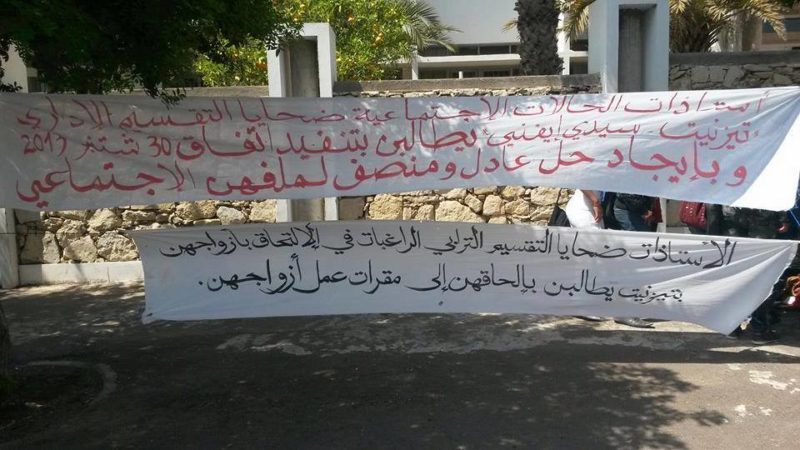 أستاذات الحالات الاجتماعية ضحايا التقسيم الإداري
"تيزنيت - سيدي إيفني" يطالبن بتنفيد اتفاق 30 شتنبر 2013
و بإيجاد حل عادل ومنصف لملفهن الاجتماعي
الأستاذات ضحايا التقسيم الترابي الراغبات في الالتحاق بأزواجهن
بتيزنيت يطالبن بإلحاقهن إلى مقرات عمل أزواجهن.